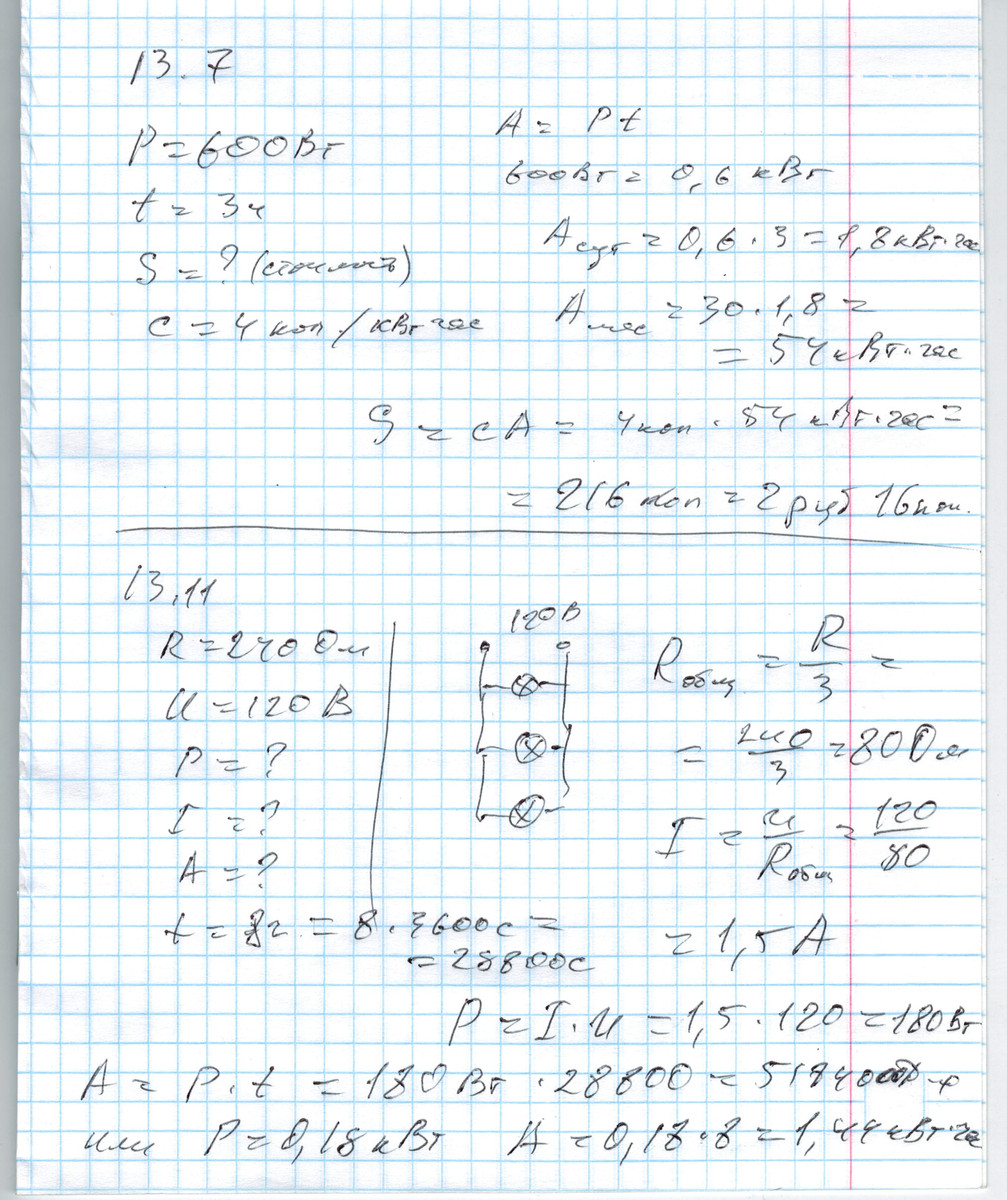 13.7
P = 600Вт
t = 3ч
S = ? (стоимость)
c = 4 коп / кВт час
A = Pt
600Вт = 0,6 кВт
A сут = 0,6 · 3 = 1,8 кВт·час
A мес = 30 · 1,8 =
= 54 кВт·час
S = cA = 4коп · 54 кВт·час =
= 216 коп = 2 руб 16коп.
13.11
R = 240 Ом
U = 120 В
P = ?
I = ?
A = ?
t = 8ч = 8 · 3600с =
= 28800с
120В
R общ = R/3 =
= 240/3 = 80 Ом
I = U/R общ = 120/80
= 1,5 А
P = I · U = 1,5 · 120 = 180Вт
A = P · t = 180 Вт · 28800 = 5184000
или P = 0,18 кВт A = 0,18 · 8 = 1,44 кВт·ча